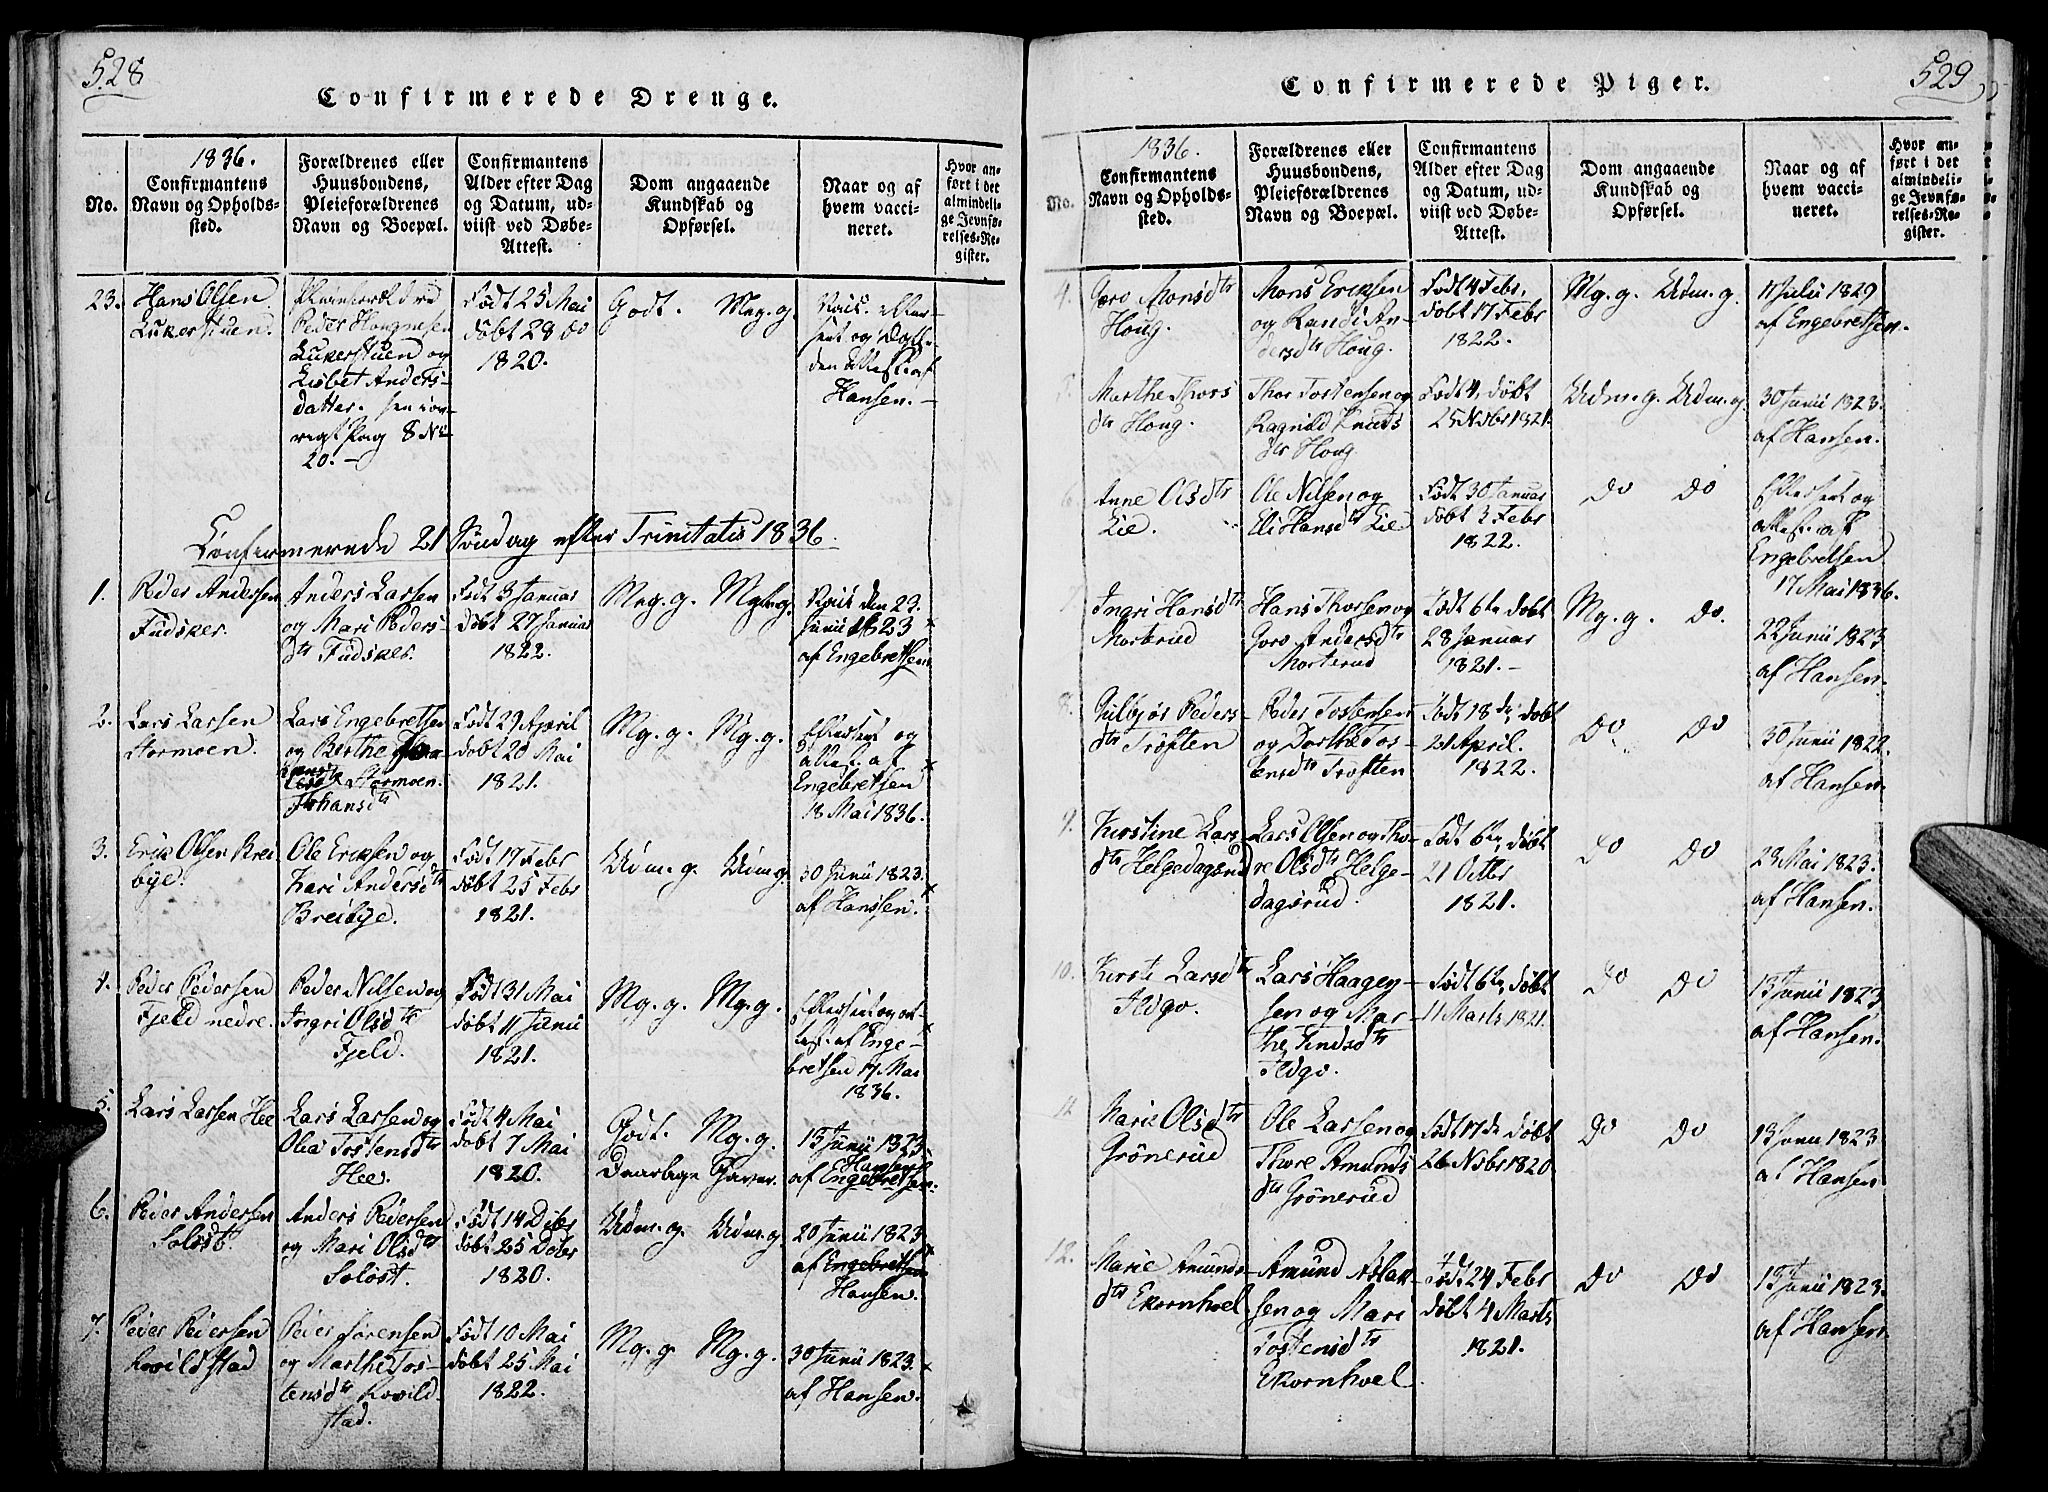 528
Confirmerede Drenge.
No.
1836.
Confirmantens
Navn og Opholds-
sted.
Forældrenes eller
Huusbondens,
Pleieforældrenes
Navn og Boepæl.
Confirmantens
Alder efter Dag
og Datum, ud-
viist ved Døbe-
Attest.
Dom angaaende
Kundskab og
Opførsel.
Naar og af
hvem vacci-
neret.
Hvor an-
ført i det
almindeli-
ge Jevnfø-
relses-Re-
gister.
23.
Hans Olsen
Lukerstuen.
Peder Haagnesen
Lukerstuen og
Lisbet Anders-
datter.
Pag 8 No
20.
Født 25 Mai
døbt 28 do
1820.
Godt. Meg.g.
Hansen.
Confirmerede 21 Søndag efter Trinitatis 1836.
1.
Peder Andersen
Fudsker.
Anders Larsen
og Mari Peders-
dtr Fudsker.
Født 3 Januar
døbt 27 Januar
1822.
Meg.g. Meg.g.
den 23
Junii 1823
af Engebretsen
2.
Lars Larsen
Stormoen.
Lars Engebretsen
og Berthe
Stormoen.
Johansdtr
Født 29 April
døbt 20 Mai
1821.
Mg.g. Mg.g.
Efterseet og
attest. af
Engebretsen
18 Mai 1836.
3.
Erik Olsen Brei
bye.
Ole Eriksen og
Kari Andersdtr
Breibye.
Født 17 Febr
døbt 25 Febr
1821.
Udm.g. Udm.g.
30 Junii 1823.
af Hansen.
4.
Peder Pedersen
Fjeld nedre.
Peder Nilsen og
Ingri Olsdtr
Fjeld.
Født 31 Mai
døbt 11 Junii
1821.
Mg.g. Mg.g.
Efterseet og at-
test. af Enge-
bretsen 17 Mai
1836.
5.
Lars Larsen Hee
Lars Larsen og
Olia Tostensdtr
Hee.
Født 4 Mai
døbt 7 Mai
1820.
Godt. Mg.g.
Daarlige Gaver.
13 Junii 1823
Hansen
af Engebretsen.
6.
Peder Andersen
Soløst.
Anders Pedersen
og Mari Olsdtr
Soløst.
Født 14 Debr
døbt 25 Debr
1820.
Udm.g. Udm.g.
20 Junii 1823
af Engebretsen
Hansen.
7.
Peder Pedersen
Rovildstad
Peder Sørensen
og Marthe Tos-
tensdtr Rovild-
stad.
Født 10 Mai
døbt 25 Mai
1822.
Mg.g. Mg.g.
30 Junii 1823.
af Hansen.
529
Confirmerede Piger.
No.
1836.
Confirmantens
Navn og Opholds-
sted.
Forældrenes eller
Huusbondens,
Pleieforældrenes
Navn og Boepæl.
Confirmantens
Alder efter Dag
og Datum, ud-
viist ved Døbe-
Attest.
Dom angaaende
Kundskab og
Opførsel.
Naar og af
hvem vacci-
neret.
Hvor an-
ført i det
almindeli-
ge Jevnfø-
relses-Re-
gister.
4.
Goro Monsdtr
Houg.
Mons Eriksen
og Randi An-
dersdtr Houg.
Født 4 Febr.
døbt 17 Febr
1822.
Mg.g. Udm.g.
11 Julii 1829
af Engebretsen.
5.
Marthe Thors
dtr Houg.
Thor Tostensen og
Ragnild Knuds
dtr Houg
Født 4, døbt
25 Novbr 1821.
Udm.g. Udm.g.
30 Junii 1823.
af Hansen.
6.
Anne Olsdtr
Lie.
Ole Nilsen og
Eli Hansdtr Lie
Født 30 Januar
døbt 3 Febr
1822.
Do Do
Efterseet og
attest. af
Engebretsen
17 Mai 1836.
7.
Ingri Hansdtr
Morterud
Hans Thorsen og
Goro Andersdtr
Morterud
Født 6te døbt
28 Januar
1821.
Mg.g. Do.
22 Junii 1823
af Hansen.
8.
Gulbjør Peders-
dtr Trøften
Peder Tostensen
og Dorthe Tos-
tensdtr Trøften
Født 18de, døbt
21 April.
1822.
Do Do
30 Junii 1822.
af Hansen.
9.
Kirstine Lars
dtr Helgedagsrud
Lars Olsen og Tho-
re Olsdtr Helge-
dagsrud.
Født 6te, døbt
21 Octbr
1821.
Do Do
28 Mai 1823.
af Hansen.
10.
Kirsti Larsdtr
Ildgo.
Lars Haagen-
sen og Mar-
the Findsdtr
Ildgo.
Født 6te, døbt
11 Marts 1821.
Do Do
13 Junii 1823
af Hansen.
11
Marie Olsdtr
Grönerud
Ole Larsen og
Thore Amunds
dtr Grönerud
Født 17de døbt
26 Novbr 1820.
Do Do
13 Junii 1823
af Hansen
12.
Marie Amunds-
dtr Ekornhoel
Amund Aslak-
sen og Mari
Tostensdtr
Ekornhoel.
Født 24 Febr
døbt 4 Marts
1821.
Do Do
13 Junii 1823.
af Hansen